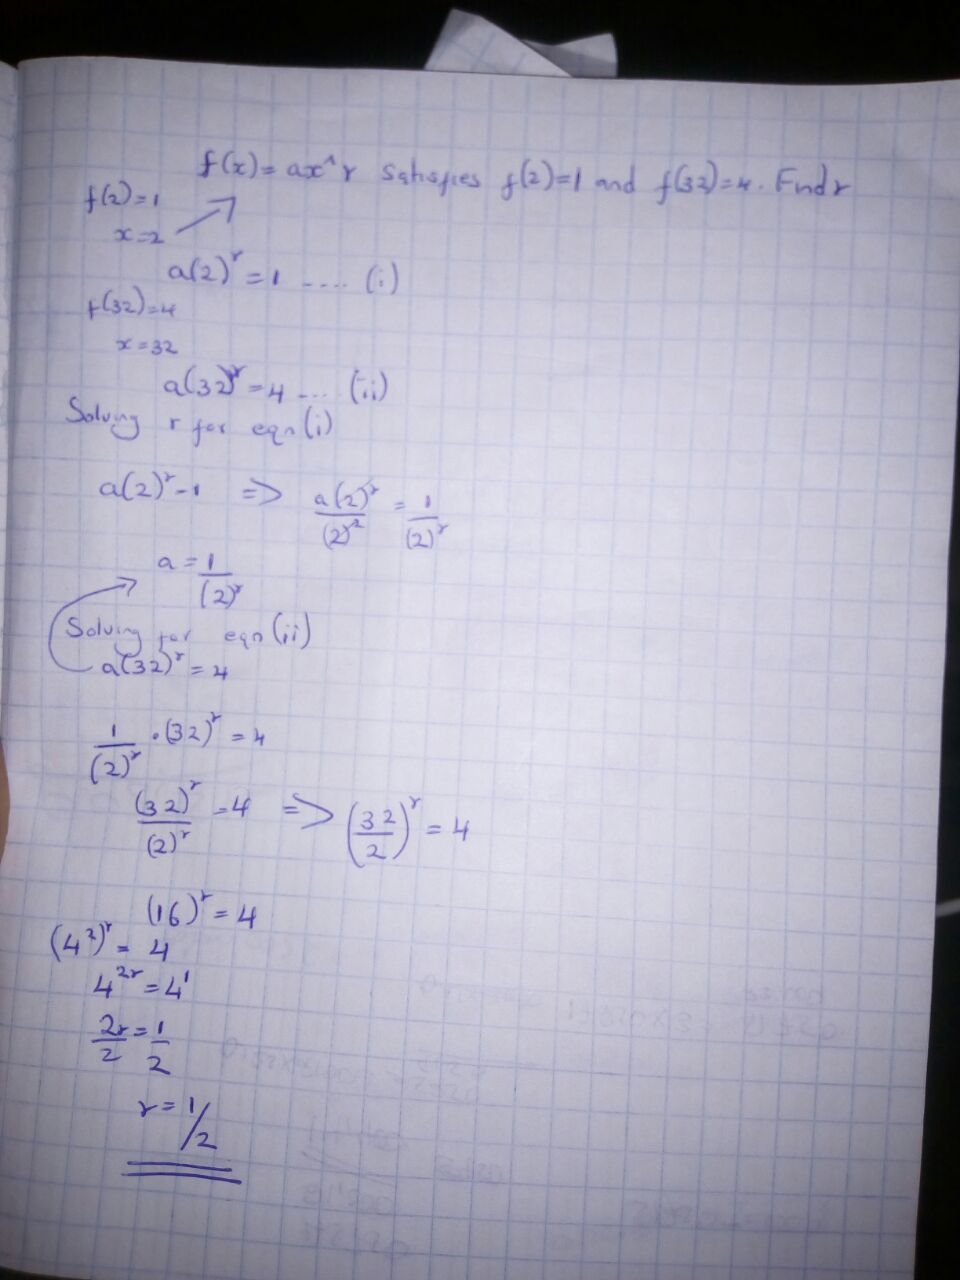 f(x)= ax^r satisfies f(2)=1 and f(32)=4. Find r
f(2)=1
x=2
a(2)^r = 1 .... (i)
f(32)=4
x=32
a(32)^r = 4 .... (ii)
Solving r for eqn (i)
a(2)^r - 1 => a(2)^r/(2)^2 = 1/(2)^r
a = 1/(2)^r
Solving for eqn (ii)
a(32)^r = 4
1/(2)^r . (32)^r = 4
(32)^r/(2)^r = 4 => (32/2)^r = 4
(16)^r = 4
(4^2)^r = 4
4^2r = 4^1
2r/2 = 1/2
r = 1/2